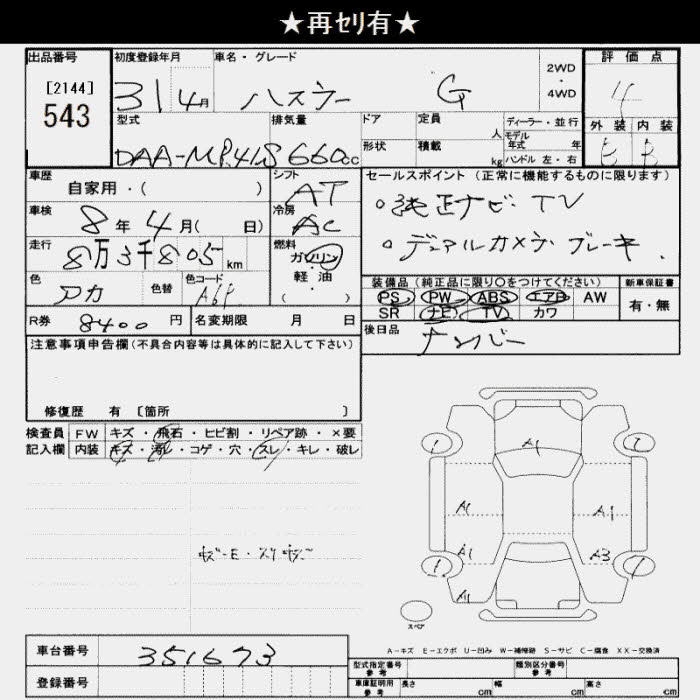 ★再ｾﾘ有★
出品番号 初度登録年月 車名・グレード 2WD ・ 4WD 評価点
[2144]
543
31 4月 ハスラー G 4
型式 排気量 ドア 定員 人 ディーラー・並行 外装 内装
形状 積載 kg モデル年式 年
ハンドル 左・右
DAA-MR41S 660cc B
車歴 シフト セールスポイント（正常に機能するものに限ります）
自家用・（ ） AT
車検 8年 4月（ 日） 冷房 AC ○純正ナビ・TV
走行 8万3千805 km 燃料 ガソリン・軽油・（ ） ○デュアルカメラブレーキ
色 アカ 色替 色コード
装備品（純正品に限り○をつけてください） 新車保証書
PS PW ABS エアB AW 有・無
SR ナビ TV カワ
R券 8400 円 名変期限 月 日 後日品 ナンバー
注意事項申告欄（不具合内容等は具体的に記入して下さい）
修復歴 有 〔箇所 〕
検査員 FW キズ・飛石・ヒビ割・リペア跡・×要
記入欄 内装 キズ・汚れ・コゲ・穴・スレ・キレ・破レ
A1
A1 A1
A1 A3
A1
スペア
A－キズ E－エクボ U－凹み W－補修跡 S－サビ C－腐食 XX－交換済
車台番号 351673
登録番号
型式指定番号 参考 類別区分番号 参考
車庫証明用 参考 長さ cm 幅 cm 高さ cm